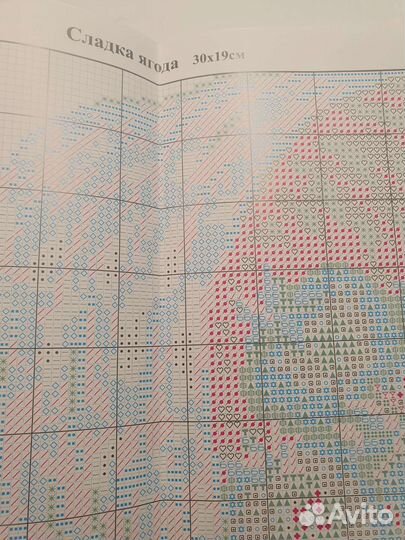 Сладка ягода 30х19см
Avito